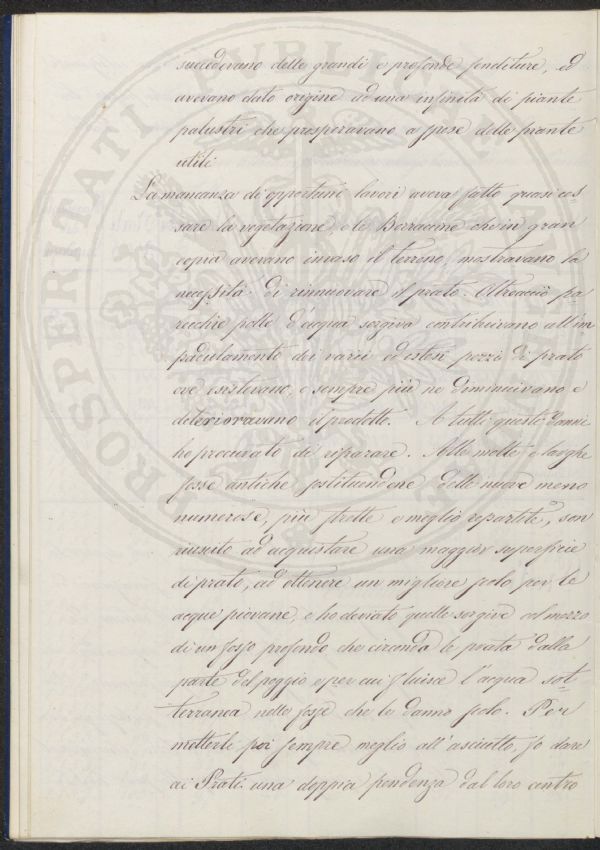 succedevano delle grandi e profonde fenditure, ed
avevano dato origine ad una infinità di piante
palustri che prosperavano a spese delle piante
utili
La mancanza di opportuni lavori aveva fatto quasi ces=
sare la vegetazione, e le Borracine che in gran
copia avevano invaso il terreno, mostravano la
necessità di rinnuovare il prato. Oltreacciò pa
recchie polle d'acqua sorgiva contribuivano all'im
padulamento dei varii ed estesi pezzi di prato
ove esistevano, e sempre più ne diminuivano e
deterioravano il prodotto. A tutti questi danni
ho procurato di riparare. Alle molte e larghe
fosse antiche sostituendone delle nuove meno
numerose, più strette e meglio repartite, son
riuscito ad acquistare una maggior superficie
di prato, ad ottenere un migliore scolo per le
acque piovane, e ho deviato quelle sorgive col mezzo
di un fosso profondo che circonda le prata dalla
parte del poggio e per cui fluisce l'acqua sot=
terranea nelle fosse che le danno scolo. Per
metterli poi sempre meglio all'asciutto, fo dare
ai Prati una doppia pendenza dal loro centro
PROSPERITATI PUBLICAE AUGENDAE